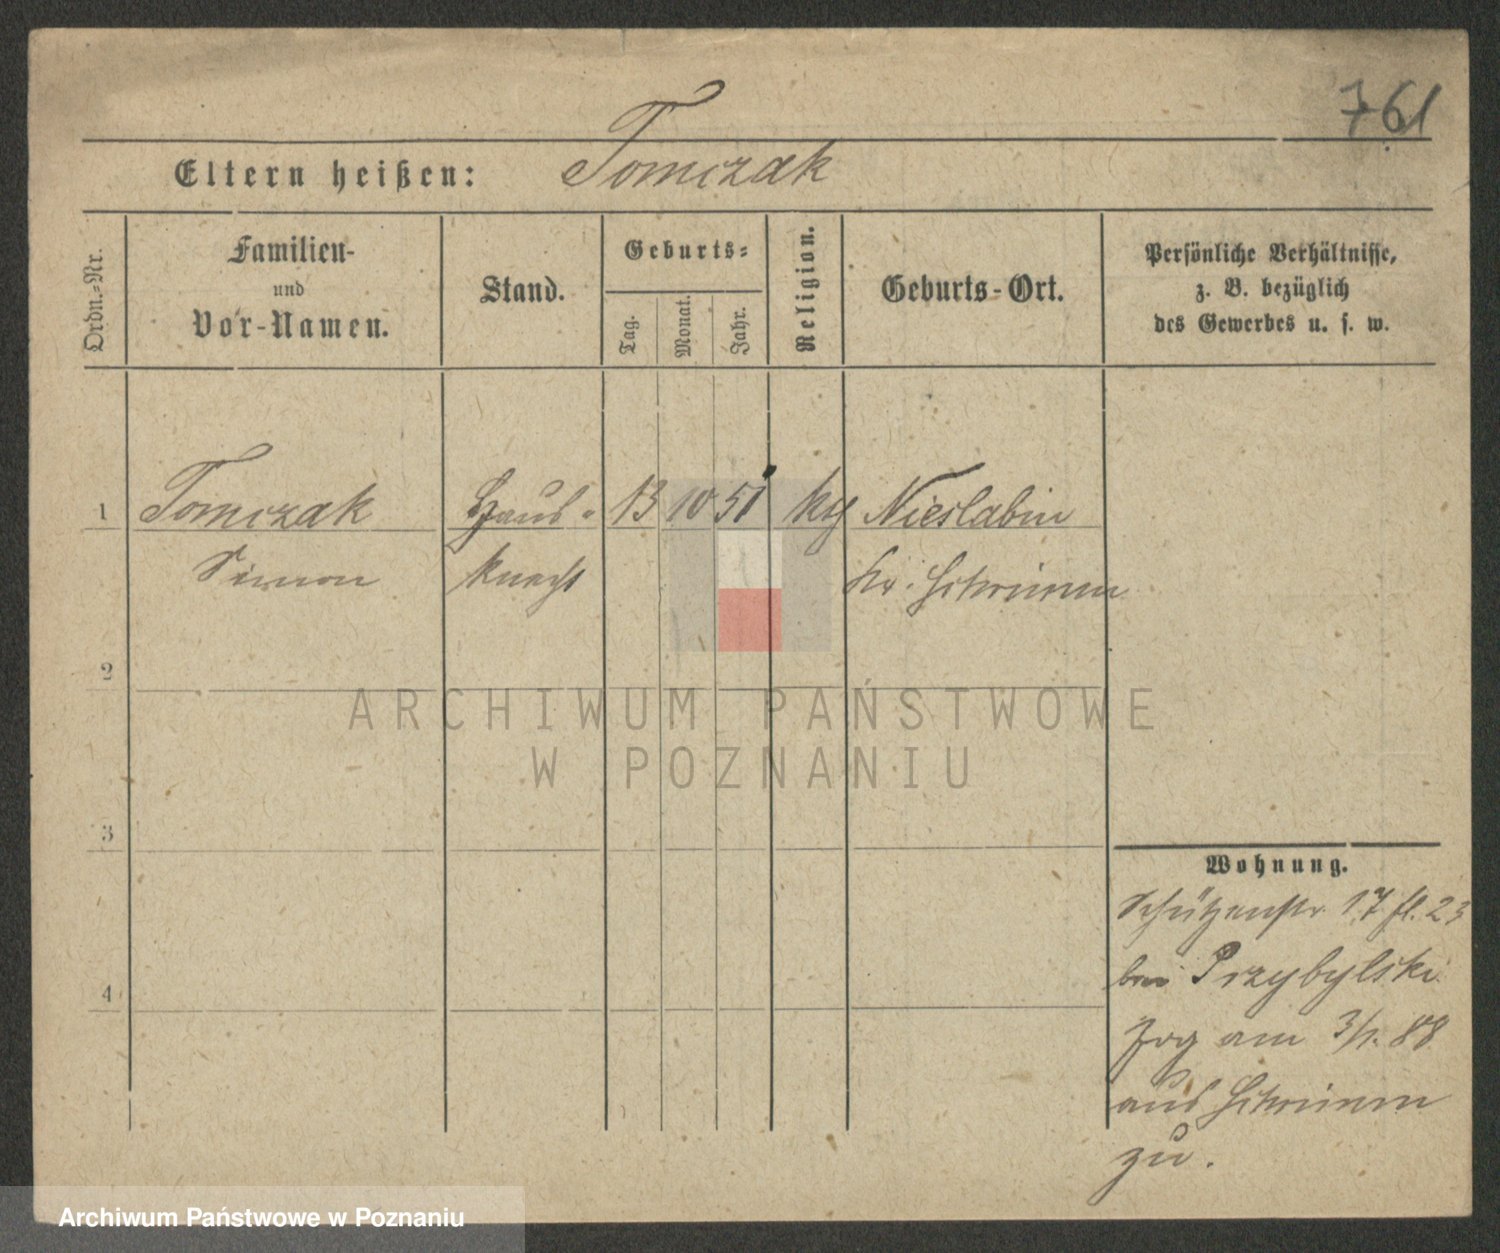 761
Eltern heißen: Tomczak
Ordn.-Nr.
Familien-
und
Vor-Namen.
Stand.
Geburts-
Tag.
Monat.
Jahr.
Religion.
Geburts-Ort.
Persönliche Verhältnisse,
z. B. bezüglich
des Gewerbes u. s. w.
1 Tomczak Haus- 13 10 51 ktg Nieslabin
Simon knecht Kr. Schrimm
2
ARCHIWUM PAŃSTWOWE
W POZNANIU
3
Wohnung.
Schützenstr 17 fl. 23
bei Przybylski
4
Zog am 3/1. 88
aus Schrimm
zu.
Archiwum Państwowe w Poznaniu